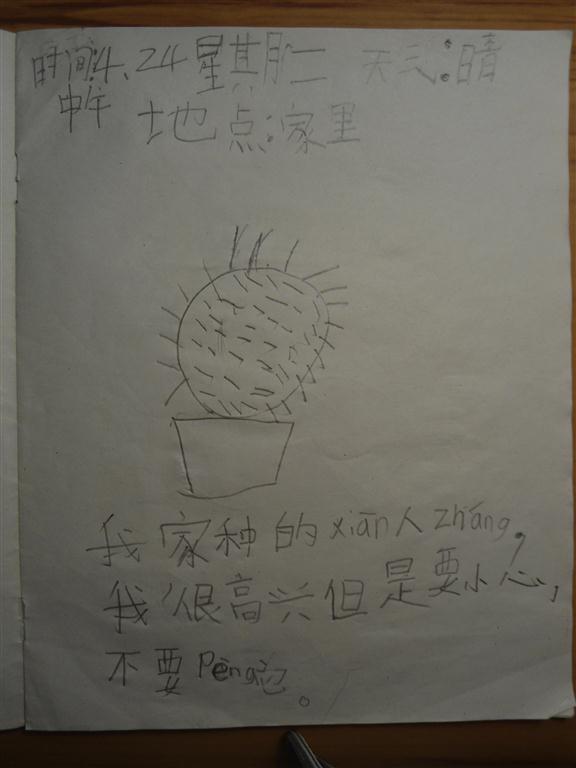 时间:4、24星期二 天气:晴
中午 地点:家里
我家种的xiān人zhǎng,
我很高兴但是要小心,
不要Pèng它。